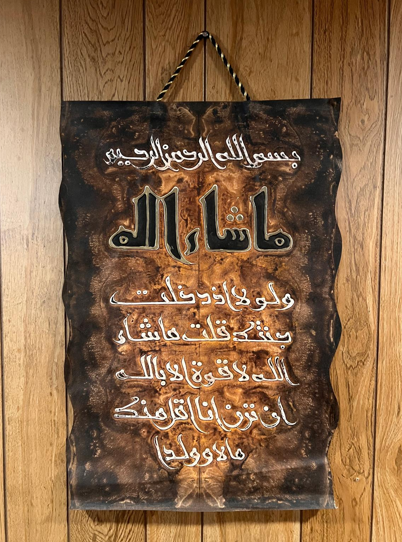 بسم الله الرحمن الرحيم
ماشاء الله
ولولا اذ دخلت
جنتك قلت ماشاء
الله لا قوة الا بالله
ان ترن انا اقل منك
مالا وولدا